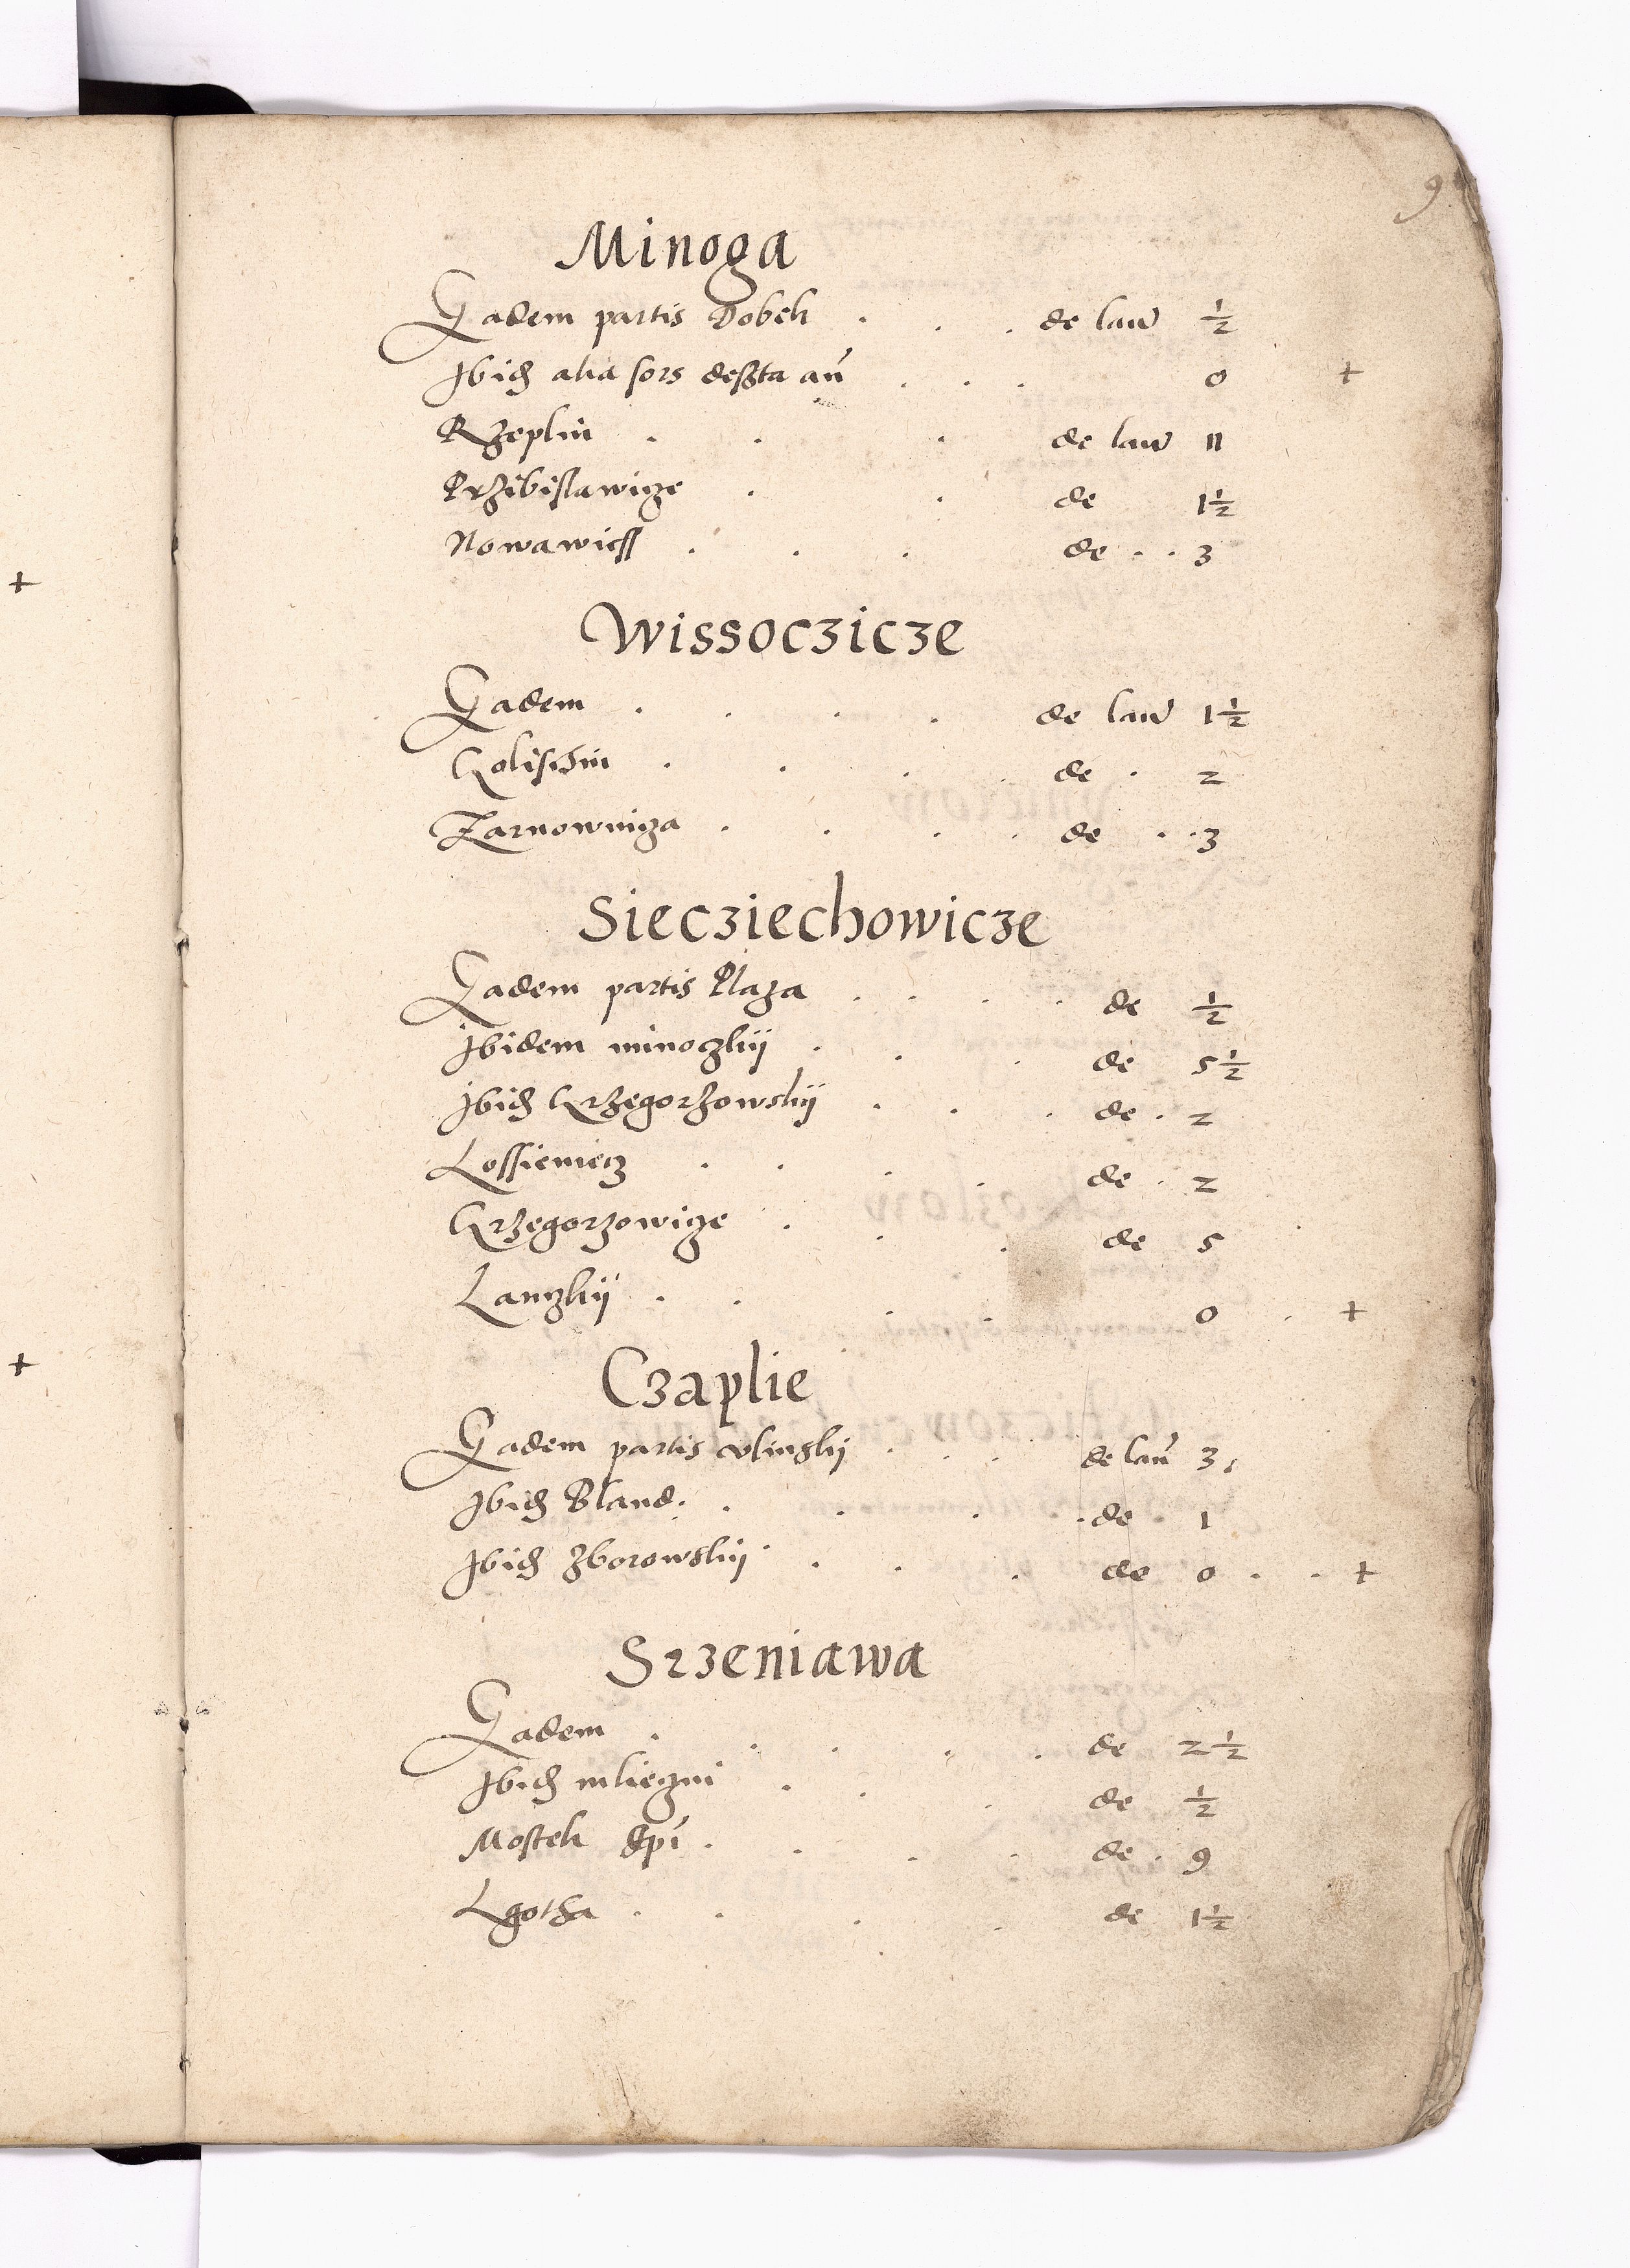 9
Minoga
Eadem partis Dobek . . . de lan̄ ½
Ibid alia sors deserta an̄ . . . 0 +
Rzeplin . . . de lan̄ 11
Przibislawicze . . de 1½
Nowawiess . . . de . . 3
Wissoczicze
Eadem . . . . de lan̄ 1½
Golischin . . . . de . 2
Zarnownicza . . . . de . . 3
Siecziechowicze
Eadem partis Plaza . . . . de ½
Ibidem minoczkij . . . de 5½
Ibid Krzegorzowskij . . . de . 2
Lossieniecz . . . . de . 2
Krzegorzowicze . . . de 5
Lanczkij . . . . 0 . +
Czaplie
Eadem partis vlinskij . . . de lan̄ 3
Ibid Bland . . . . . de . 1
Ibid Zborowskij . . . . de 0 . . +
Srzeniawa
Eadem . . . . . de 2½
Ibid mlieczni . . . de ½
Mostek Epi . . . . de . 9
Lgotha . . . . de 1½